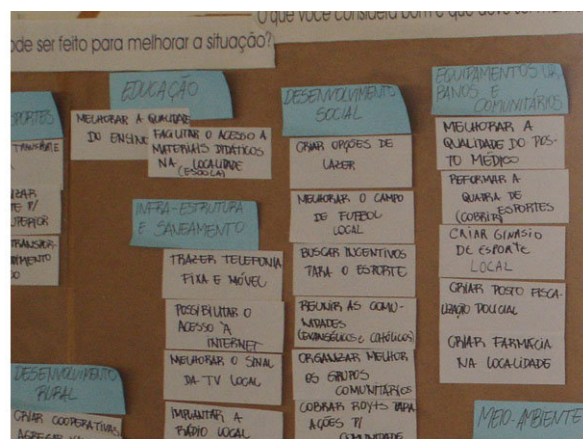 O que você considera bom e que deve ser
ode ser feito para melhorar a situação?
PORTES
TRANSPORTE
EDUCAÇÃO
MELHORAR A QUALIDADE
DO ENSINO
FACILITAR O ACESSO A
MATERIAIS DIDÁTICOS
NA LOCALIDADE
(ESCOLA)
INFRA-ESTRUTURA
E SANEAMENTO
TRAZER TELEFONIA
FIXA E MÓVEL
POSSIBILITAR O
ACESSO À
INTERNET
MELHORAR O SINAL
DA TV LOCAL
IMPLANTAR A
RÁDIO LOCAL
DESENVOLVIMENTO
RURAL
CRIAR COOPERATIVAS
DESENVOLVIMENTO
SOCIAL
CRIAR OPÇÕES DE
LAZER
MELHORAR O CAMPO
DE FUTEBOL
LOCAL
BUSCAR INCENTIVOS
PARA O ESPORTE
REUNIR AS COMU-
NIDADES
(EVANGÉLICOS e CATÓLICOS)
ORGANIZAR MELHOR
OS GRUPOS
COMUNITÁRIOS
COBRAR ROYTS PARA
AÇÕES P/
COMUNIDADE
EQUIPAMENTOS UR
BANOS E
COMUNITÁRIOS
MELHORAR A
QUALIDADE DO POS-
TO MÉDICO
REFORMAR A
QUADRA DE
ESPORTES
(COBRIR)
CRIAR GINASIO
DE ESPORTE
LOCAL
CRIAR POSTO FISCA-
LIZAÇÃO POLICIAL
CRIAR FARMÁCIA
NA LOCALIDADE
MEIO-AMBIENTE